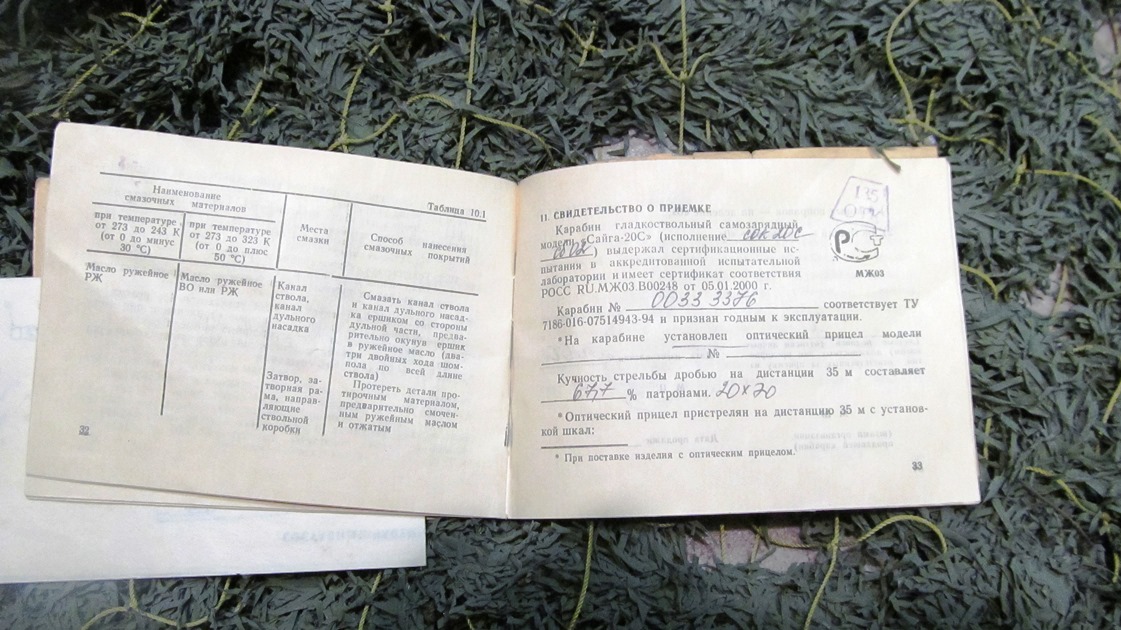 Таблица 10.1
Наименование
смазочных материалов
при температуре
от 273 до 243 К
(от 0 до минус
30 °С)
при температуре
от 273 до 323 К
(от 0 до плюс
50 °С)
Места
смазки
Способ нанесения
смазочных покрытий
Масло ружейное
РЖ
Масло ружейное
ВО или РЖ
Канал
ствола,
канал
дульного
насадка
Смазать канал ствола
и канал дульного насад-
ка ершиком со стороны
дульной части, предва-
рительно окунув ершик
в ружейное масло (два-
три двойных хода шом-
пола по всей длине
ствола)
Затвор, за-
творная ра-
ма, направ-
ляющие
ствольной
коробки
Протереть детали про-
тирочным материалом,
предварительно смочен-
ным ружейным маслом
и отжатым
32
11. СВИДЕТЕЛЬСТВО О ПРИЕМКЕ
Карабин гладкоствольный самозарядный
модели «Сайга-20С» (исполнение сок 20С
) выдержал сертификационные ис-
пытания в аккредитованной испытательной
лаборатории и имеет сертификат соответствия
РОСС RU.МЖ03.В00248 от 05.01.2000 г.
135
МЖ03
Карабин № 0033 3376 соответствует ТУ
7186-016-07514943-94 и признан годным к эксплуатации.
*На карабине установлен оптический прицел модели
№
Кучность стрельбы дробью на дистанции 35 м составляет
67,7 % патронами. 20х70
*Оптический прицел пристрелян на дистанцию 35 м с установ-
кой шкал:
* При поставке изделия с оптическим прицелом.
33